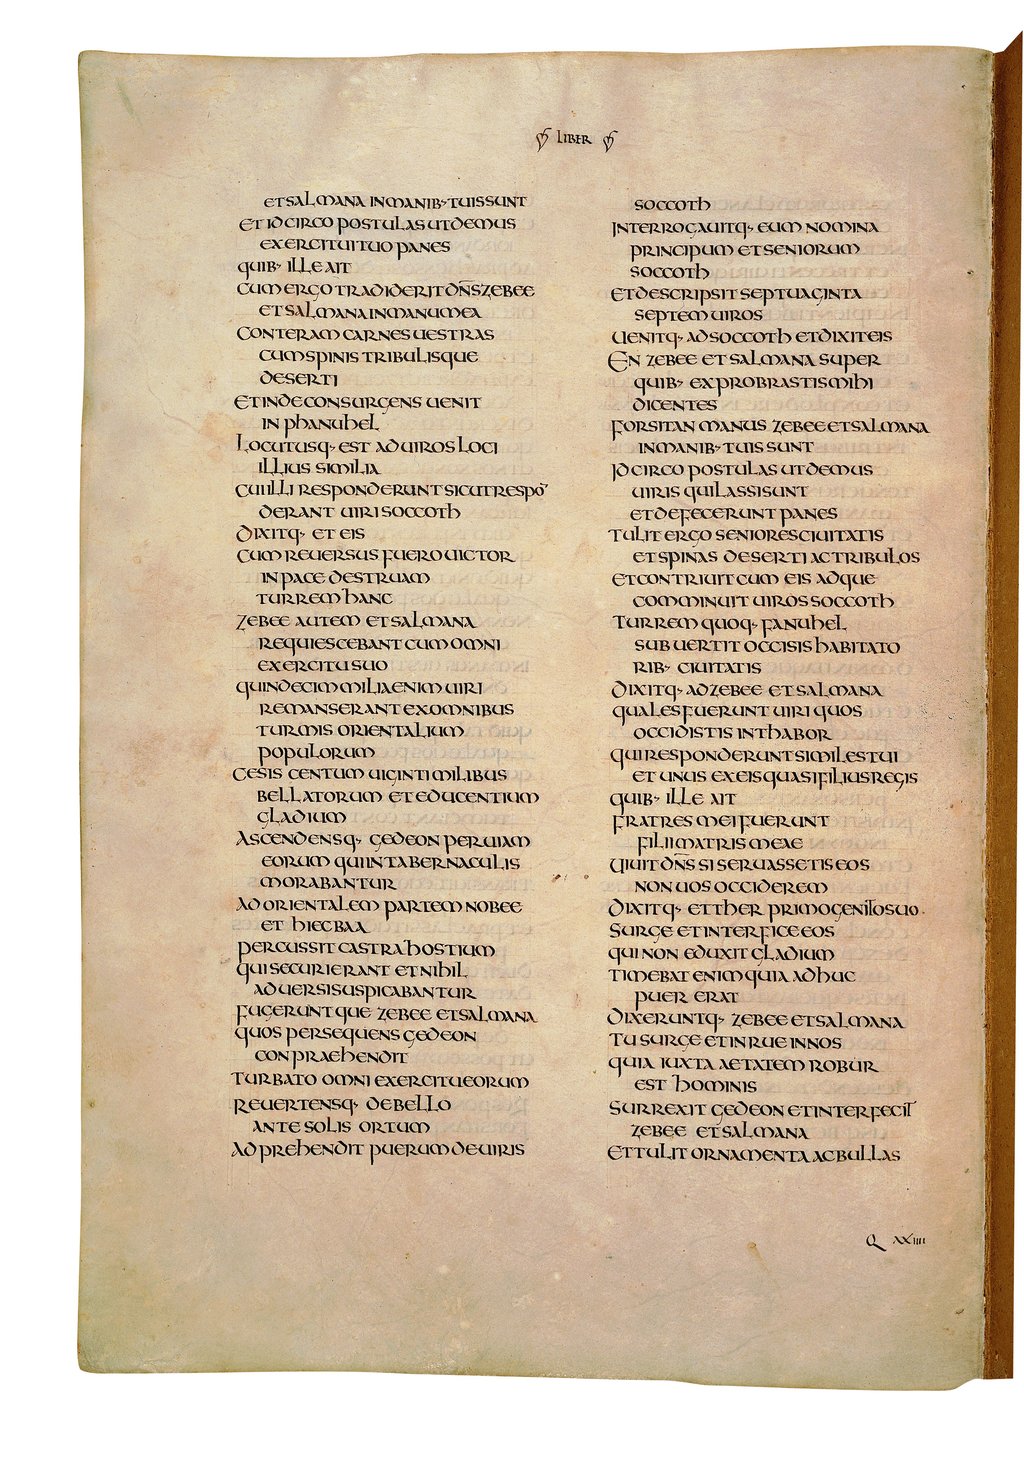 LIBER
ET SALMANA IN MANIB· TUIS SUNT
ET IDCIRCO POSTULAS UT DEMUS
EXERCITUI TUO PANES
QUIB· ILLE AIT
CUM ERGO TRADIDERIT DN̄S ZEBEE
ET SALMANA IN MANU MEA
CONTERAM CARNES UESTRAS
CUM SPINIS TRIBULISQUE
DESERTI
ET INDE CONSURGENS UENIT
IN PHANUHEL
LOCUTUSQ· EST AD UIROS LOCI
ILLIUS SIMILIA
CUI ILLI RESPONDERUNT SICUT RESPŌ
DERANT UIRI SOCCOTH
DIXITQ· ET EIS
CUM REUERSUS FUERO UICTOR
IN PACE DESTRUAM
TURREM HANC
ZEBEE AUTEM ET SALMANA
REQUIESCEBANT CUM OMNI
EXERCITU SUO
QUINDECIM MILIA ENIM UIRI
REMANSERANT EX OMNIBUS
TURMIS ORIENTALIUM
POPULORUM
CESIS CENTUM UIGINTI MILIBUS
BELLATORUM ET EDUCENTIUM
GLADIUM
ASCENDENSQ· GEDEON PER UIAM
EORUM QUI IN TABERNACULIS
MORABANTUR
AD ORIENTALEM PARTEM NOBEE
ET HIECBAA
PERCUSSIT CASTRA HOSTIUM
QUI SECURI ERANT ET NIHIL
ADUERSI SUSPICABANTUR
FUGERUNTQUE ZEBEE ET SALMANA
QUOS PERSEQUENS GEDEON
CONPRAEHENDIT
TURBATO OMNI EXERCITU EORUM
REUERTENSQ· DE BELLO
ANTE SOLIS ORTUM
ADPREHENDIT PUERUM DE UIRIS
SOCCOTH
INTERROGAUITQ· EUM NOMINA
PRINCIPUM ET SENIORUM
SOCCOTH
ET DESCRIPSIT SEPTUAGINTA
SEPTEM UIROS
UENITQ· AD SOCCOTH ET DIXIT EIS
EN ZEBEE ET SALMANA SUPER
QUIB· EXPROBRASTIS MIHI
DICENTES
FORSITAN MANUS ZEBEE ET SALMANA
IN MANIB· TUIS SUNT
IDCIRCO POSTULAS UT DEMUS
UIRIS QUI LASSI SUNT
ET DEFECERUNT PANES
TULIT ERGO SENIORES CIUITATIS
ET SPINAS DESERTI AC TRIBULOS
ET CONTRIUIT CUM EIS ADQUE
COMMINUIT UIROS SOCCOTH
TURREM QUOQ· FANUHEL
SUBUERTIT OCCISIS HABITATO
RIB· CIUITATIS
DIXITQ· AD ZEBEE ET SALMANA
QUALES FUERUNT UIRI QUOS
OCCIDISTIS IN THABOR
QUI RESPONDERUNT SIMILES TUI
ET UNUS EX EIS QUASI FILIUS REGIS
QUIB· ILLE AIT
FRATRES MEI FUERUNT
FILII MATRIS MEAE
UIUIT DN̄S SI SERUASSETIS EOS
NON UOS OCCIDEREM
DIXITQ· ETTHER PRIMOGENITO SUO·
SURGE ET INTERFICE EOS
QUI NON EDUXIT GLADIUM
TIMEBAT ENIM QUIA ADHUC
PUER ERAT
DIXERUNTQ· ZEBEE ET SALMANA
TU SURGE ET INRUE IN NOS
QUIA IUXTA AETATEM ROBUR
EST HOMINIS
SURREXIT GEDEON ET INTERFECIT
ZEBEE ET SALMANA
ET TULIT ORNAMENTA AC BULLAS
Q XXIIII